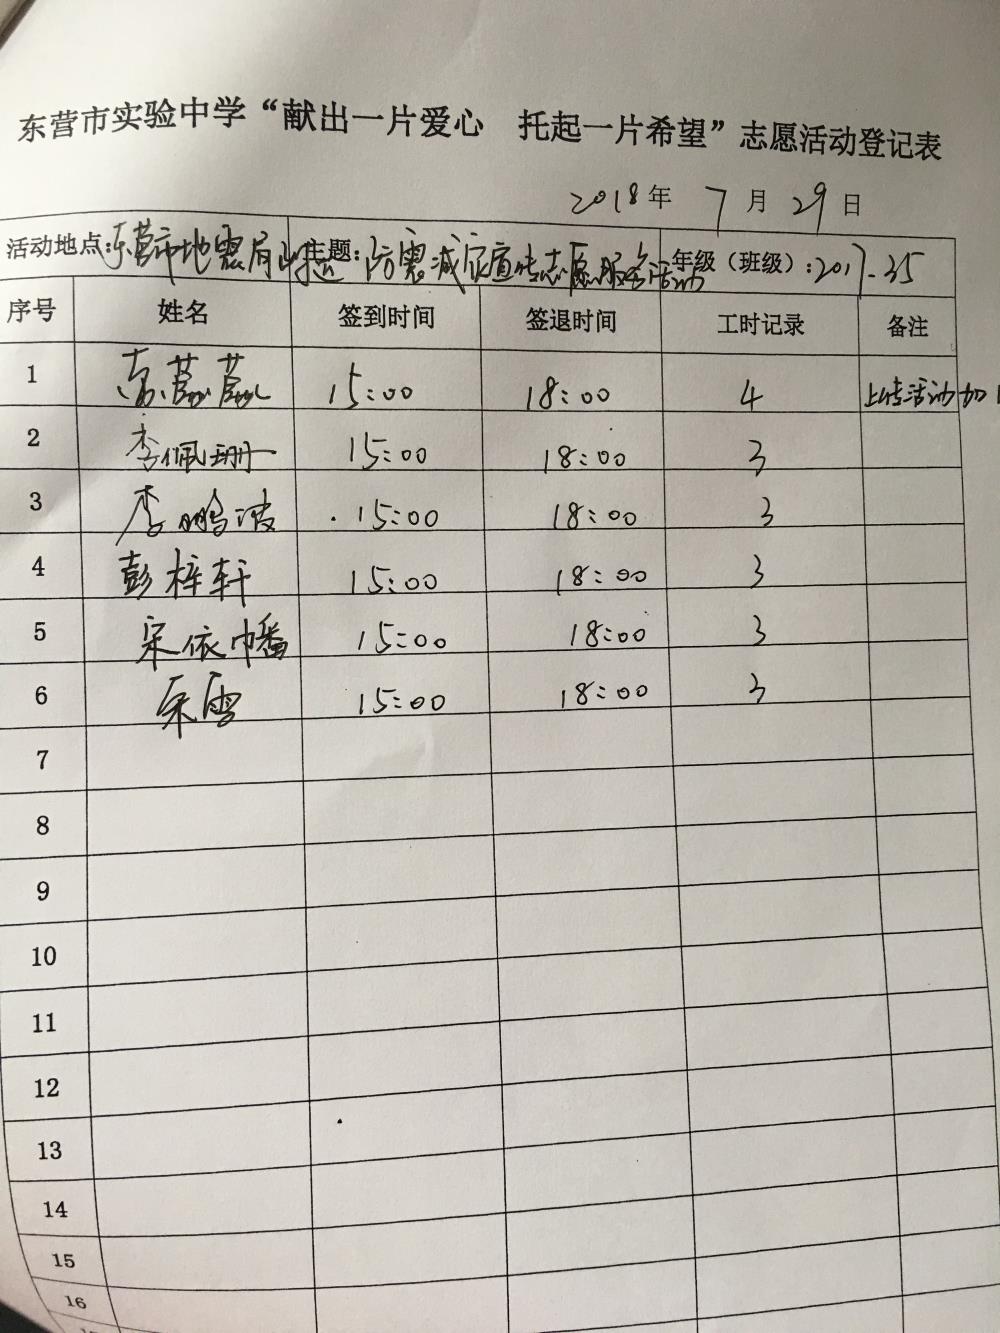 东营市实验中学“献出一片爱心 托起一片希望”志愿活动登记表
2018年 7月29日
活动地点:东营市地震局 主题:防震减灾宣传志愿服务活动 年级(班级):2017-35
序号 姓名 签到时间 签退时间 工时记录 备注
1 15:00 18:00 4 上传活动加1
2 李佩珊 15:00 18:00 3
3 李鹏波 15:00 18:00 3
4 彭梓轩 15:00 18:00 3
5 宋依幡 15:00 18:00 3
6 15:00 18:00 3
7
8
9
10
11
12
13
14
15
16